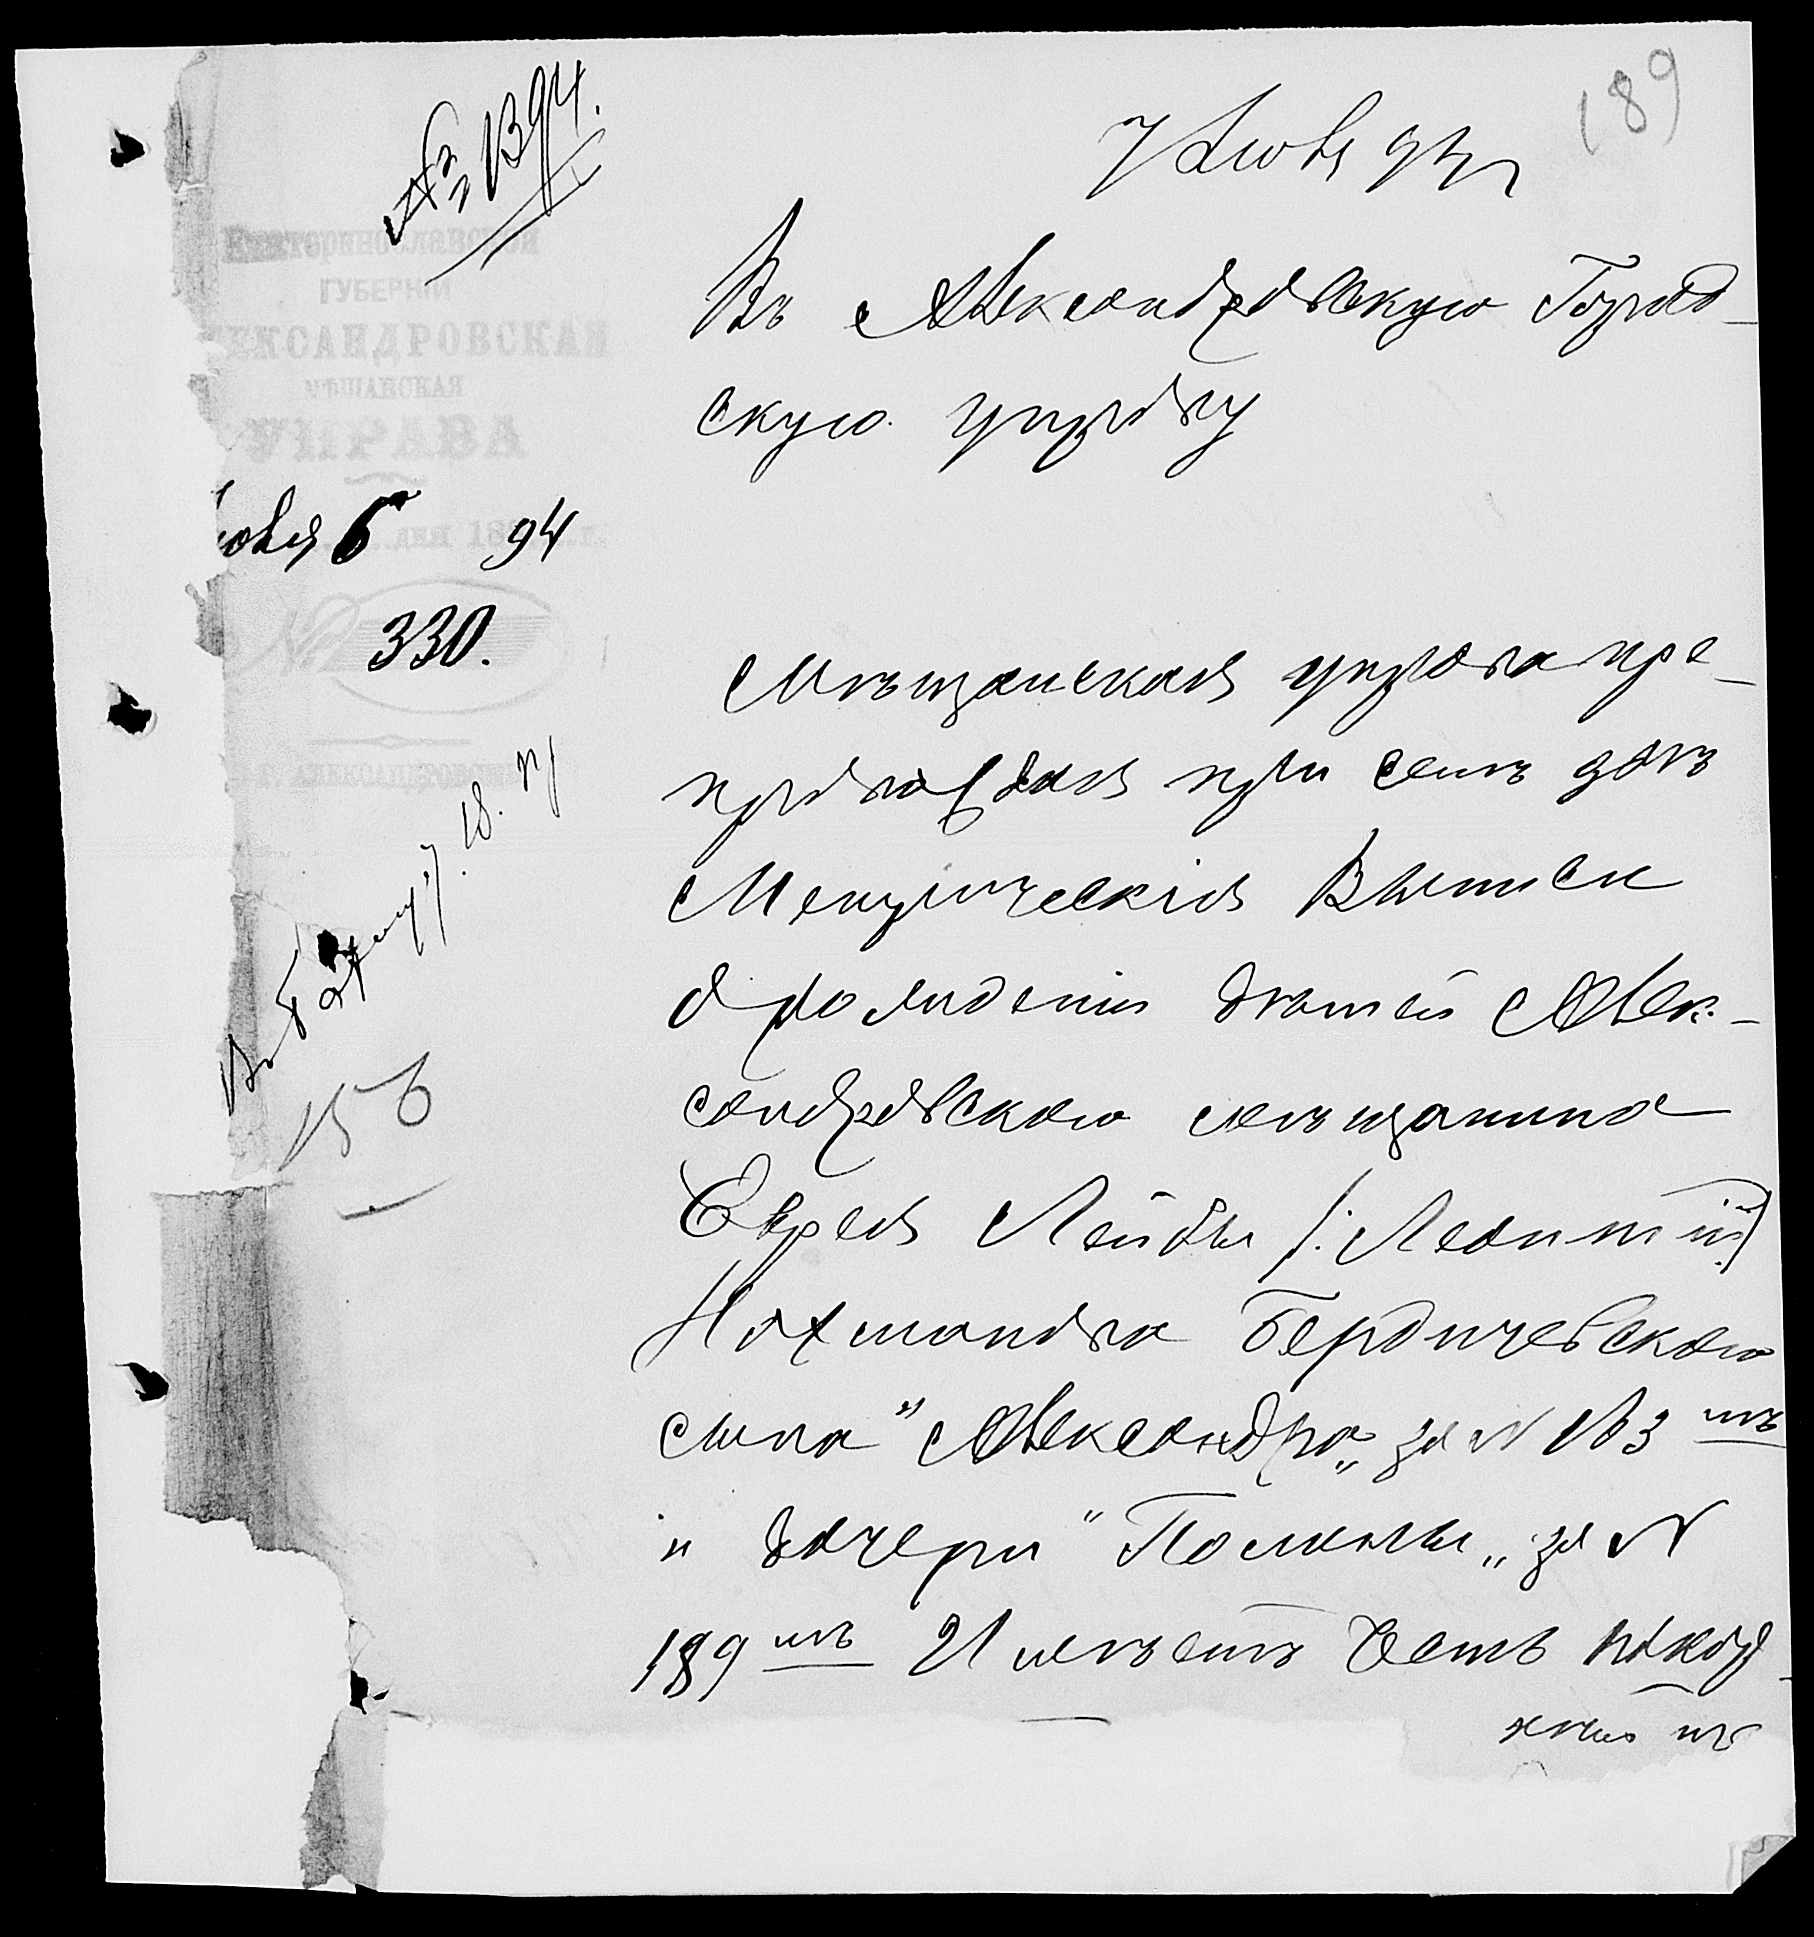 189
№ 1394.
7 Июня 94 г
Екатеринославской
ГУБЕРНІИ
ЕКСАНДРОВСКАЯ
МѢЩАНСКАЯ
УПРАВА
юня 6 дня 1894 г.
№ 330.
Г. АЛЕКСАНДРОВСКЪ
156
Въ Александровскую Город-
скую управу
Мѣщанская управа пре-
провождая при семъ двѣ
Метрическія Выписи
о рожденіи дѣтей Алек-
сандровскаго мѣщанина
Еврея Лейбы /: Леонтій :/
Нахманова Бердичевскаго
сына "Александра" за №
и дочери "Полины" за №
189 мъ Имѣетъ честь покор-